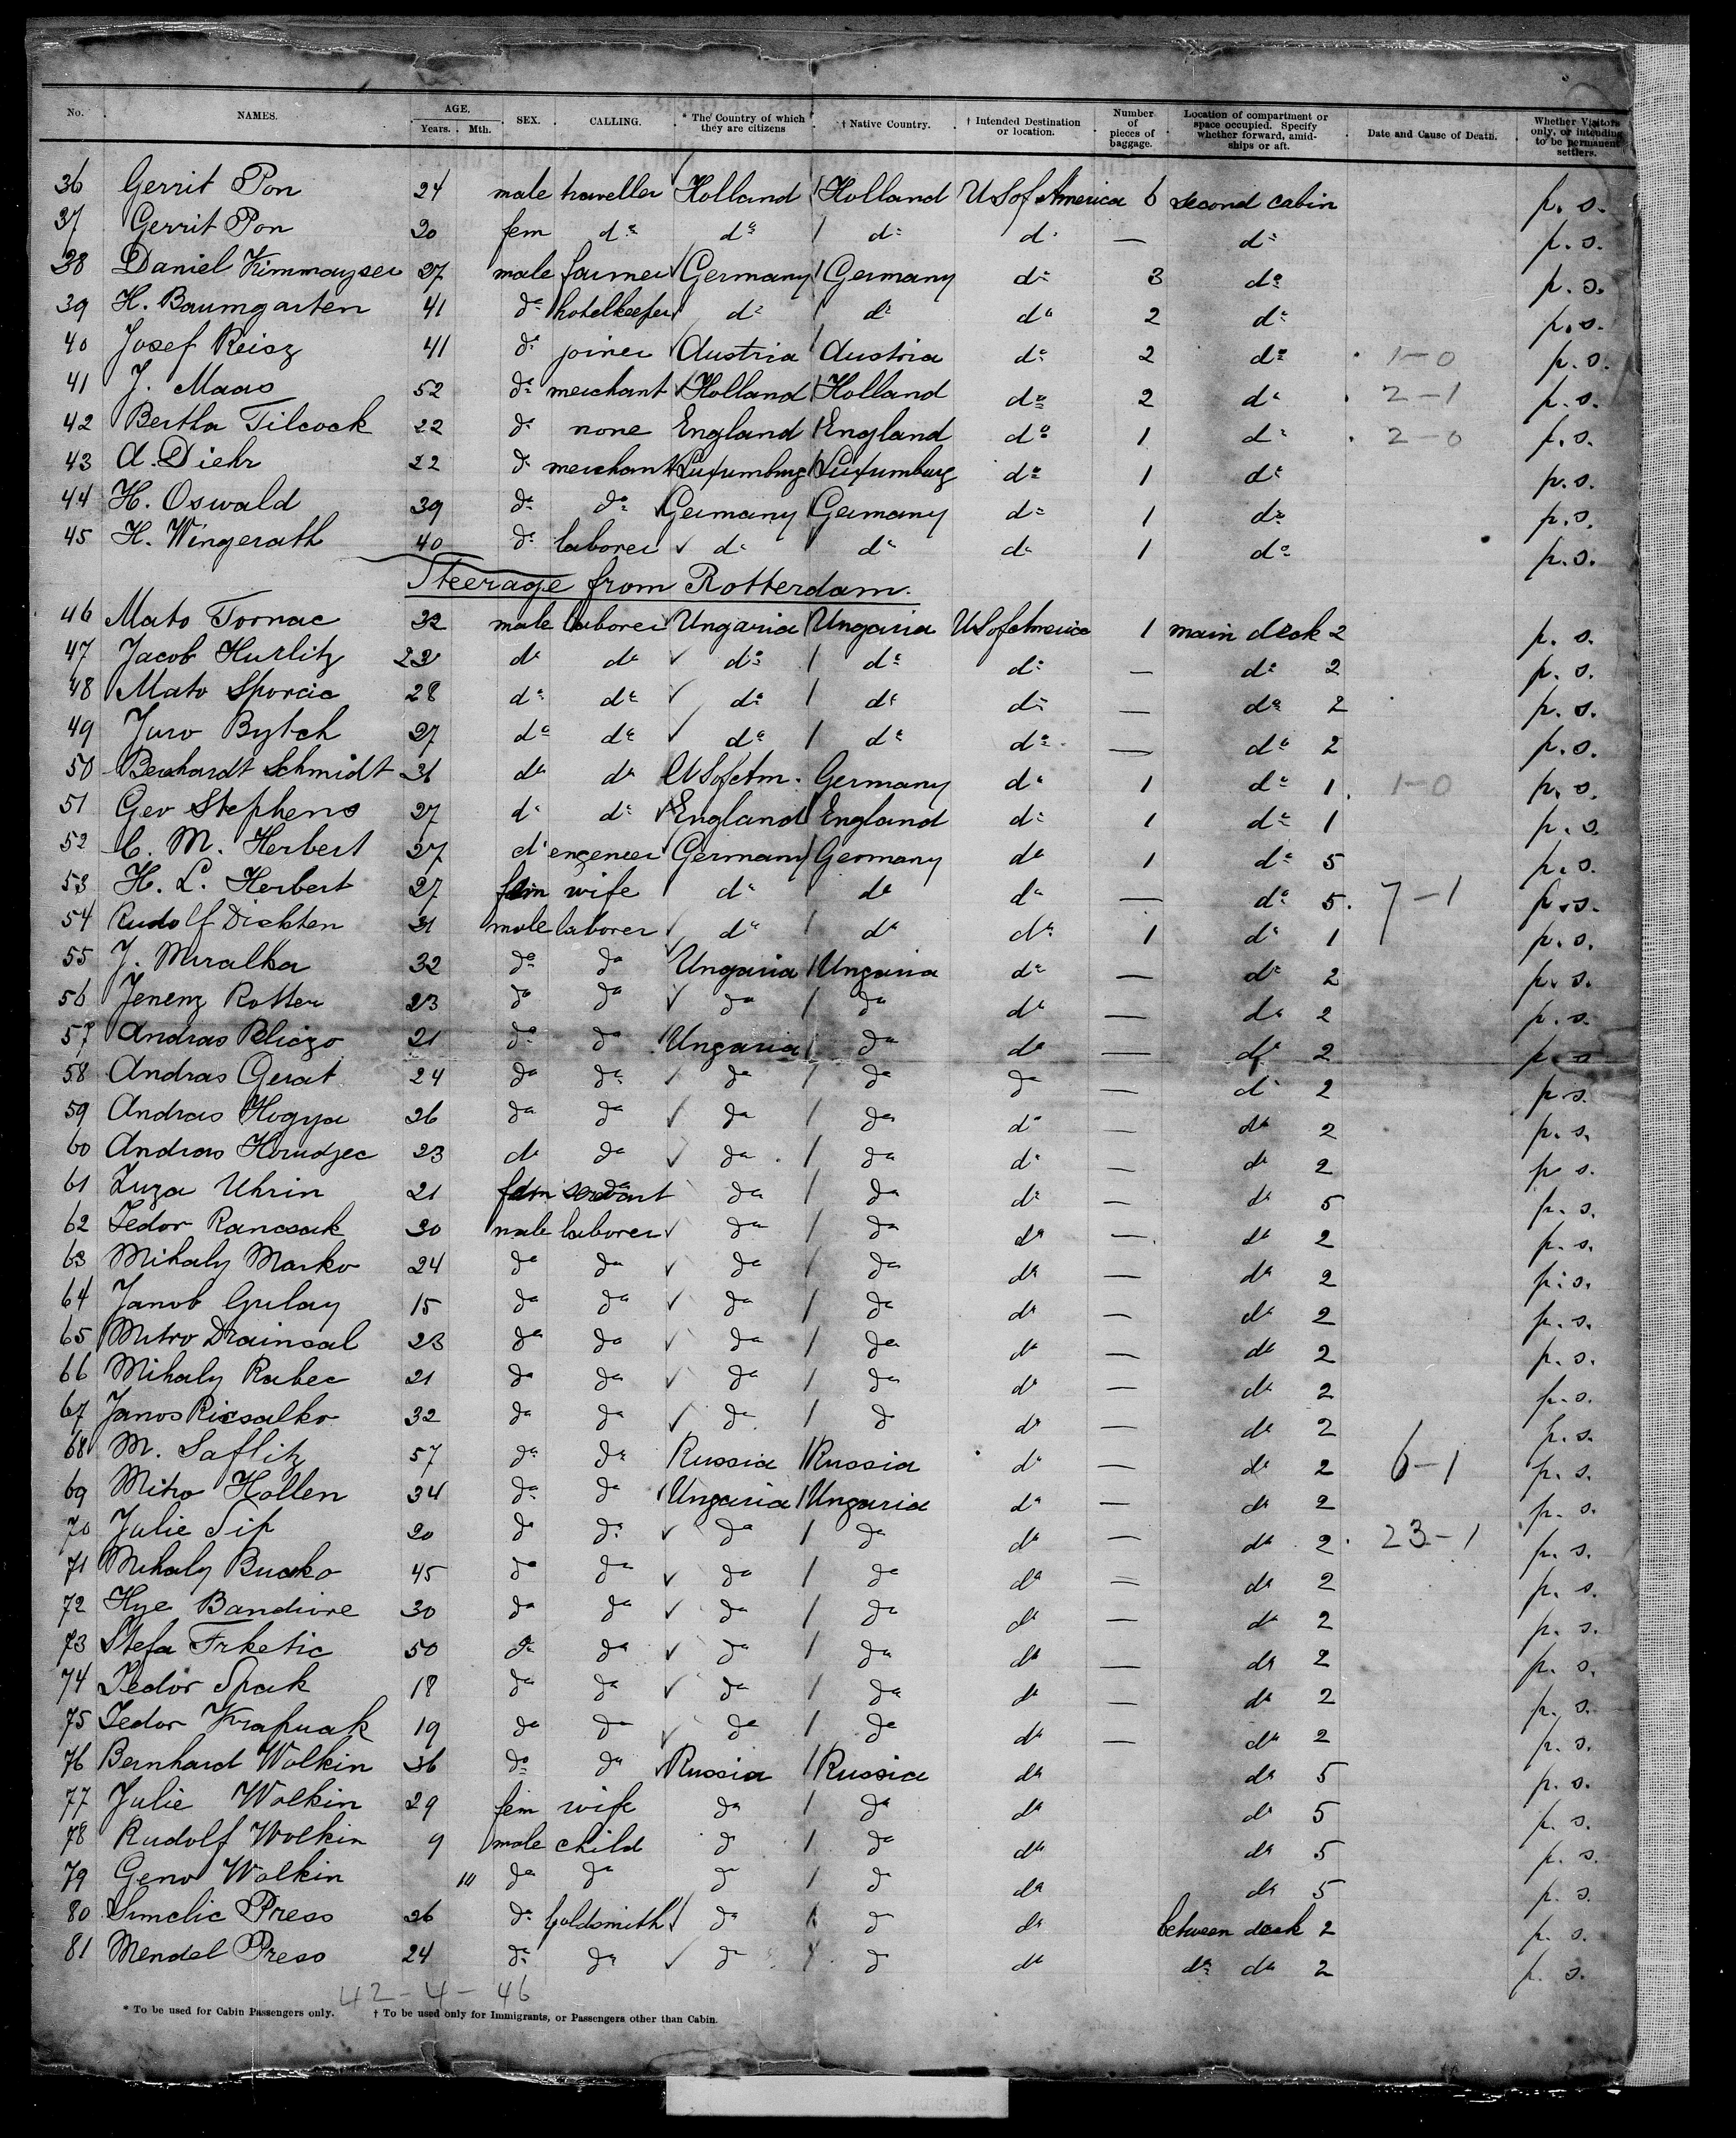 No. NAMES. AGE. Years. Mth. SEX. CALLING. * The Country of which they are citizens † Native Country. † Intended Destination or location. Number of pieces of baggage. Location of compartment or space occupied. Specify whether forward, amidships or aft. Date and Cause of Death. Whether Visitors only, or intending to be permanent settlers.
36 Gerrit Pon 24 male traveller Holland Holland US of America 6 second cabin p. s.
37 Gerrit Pon 20 fem do do do do — do p. s.
38 Daniel Kimmayser 27 male farmer Germany Germany do 3 do p. s.
39 H. Baumgarten 41 do hotelkeeper do do do 2 do p. s.
40 Josef Reisz 41 do joiner Austria Austria do 2 do 1-0 p. s.
41 J. Maas 52 do merchant Holland Holland do 2 do 2-1 p. s.
42 Bertha Tilcock 22 do none England England do 1 do 2-0 p. s.
43 A. Diehr 22 do merchant Luxumburg Luxumburg do 1 do p. s.
44 H. Oswald 39 do do Germany Germany do 1 do p. s.
45 H. Wingerath 40 do laborer do do do 1 do p. s.
Steerage from Rotterdam.
46 Mato Tornac 32 male laborer Ungaria Ungaria US of America 1 main deck 2 p. s.
47 Jacob Hurlitz 23 do do do do do — do 2 p. s.
48 Mato Sporcic 28 do do do do do — do 2 p. s.
49 Juro Bytch 27 do do do do do — do 2 p. s.
50 Bernhardt Schmidt 36 do do US of Am. Germany do 1 do 1 1-0 p. s.
51 Geo Stephens 27 do do England England do 1 do 1 p. s.
52 C. M. Herbert 27 do engeneer Germany Germany do 1 do 5 p. s.
53 H. L. Herbert 27 fem wife do do do — do 5 7-1 p. s.
54 Rudolf Dichten 31 male laborer do do do 1 do 1 p. s.
55 J. Miralka 32 do do Ungaria Ungaria do — do 2 p. s.
56 Jenenz Rotter 23 do do do do do — do 2 p. s.
57 Andras Bliczo 21 do do Ungaria do do — do 2 p. s.
58 Andras Gerat 24 do do do do do — do 2 p. s.
59 Andras Hogya 26 do do do do do — do 2 p. s.
60 Andras Hrudzec 23 do do do do do — do 2 p. s.
61 Zuza Uhrin 21 fem servant do do do — do 5 p. s.
62 Fedor Rancsak 30 male laborer do do do — do 2 p. s.
63 Mihaly Marko 24 do do do do do — do 2 p. s.
64 Janob Gulay 15 do do do do do — do 2 p. s.
65 Mitro Drainsal 23 do do do do do — do 2 p. s.
66 Mihaly Rabec 21 do do do do do — do 2 p. s.
67 Janos Ricsalko 32 do do do do do — do 2 p. s.
68 M. Saflitz 57 do do Russia Russia do — do 2 6-1 p. s.
69 Mitro Hollen 34 do do Ungaria Ungaria do — do 2 p. s.
70 Julie Sip 20 do do do do do — do 2 23-1 p. s.
71 Mihaly Bucko 45 do do do do do — do 2 p. s.
72 Hye Bandiore 30 do do do do do — do 2 p. s.
73 Stefa Trketic 50 do do do do do — do 2 p. s.
74 Fedor Spak 18 do do do do do — do 2 p. s.
75 Fedor Krapuak 19 do do do do do — do 2 p. s.
76 Bernhard Wolkin 36 do do Russia Russia do do 5 p. s.
77 Julie Wolkin 29 fem wife do do do do 5 p. s.
78 Rudolf Wolkin 9 male child do do do do 5 p. s.
79 Geno Wolkin 10 do do do do do do 5 p. s.
80 Simelic Press 26 do Goldsmith do do do between deck 2 p. s.
81 Mendel Press 24 do do do do do do do 2 p. s.
42-4-46
* To be used for Cabin Passengers only. † To be used only for Immigrants, or Passengers other than Cabin.